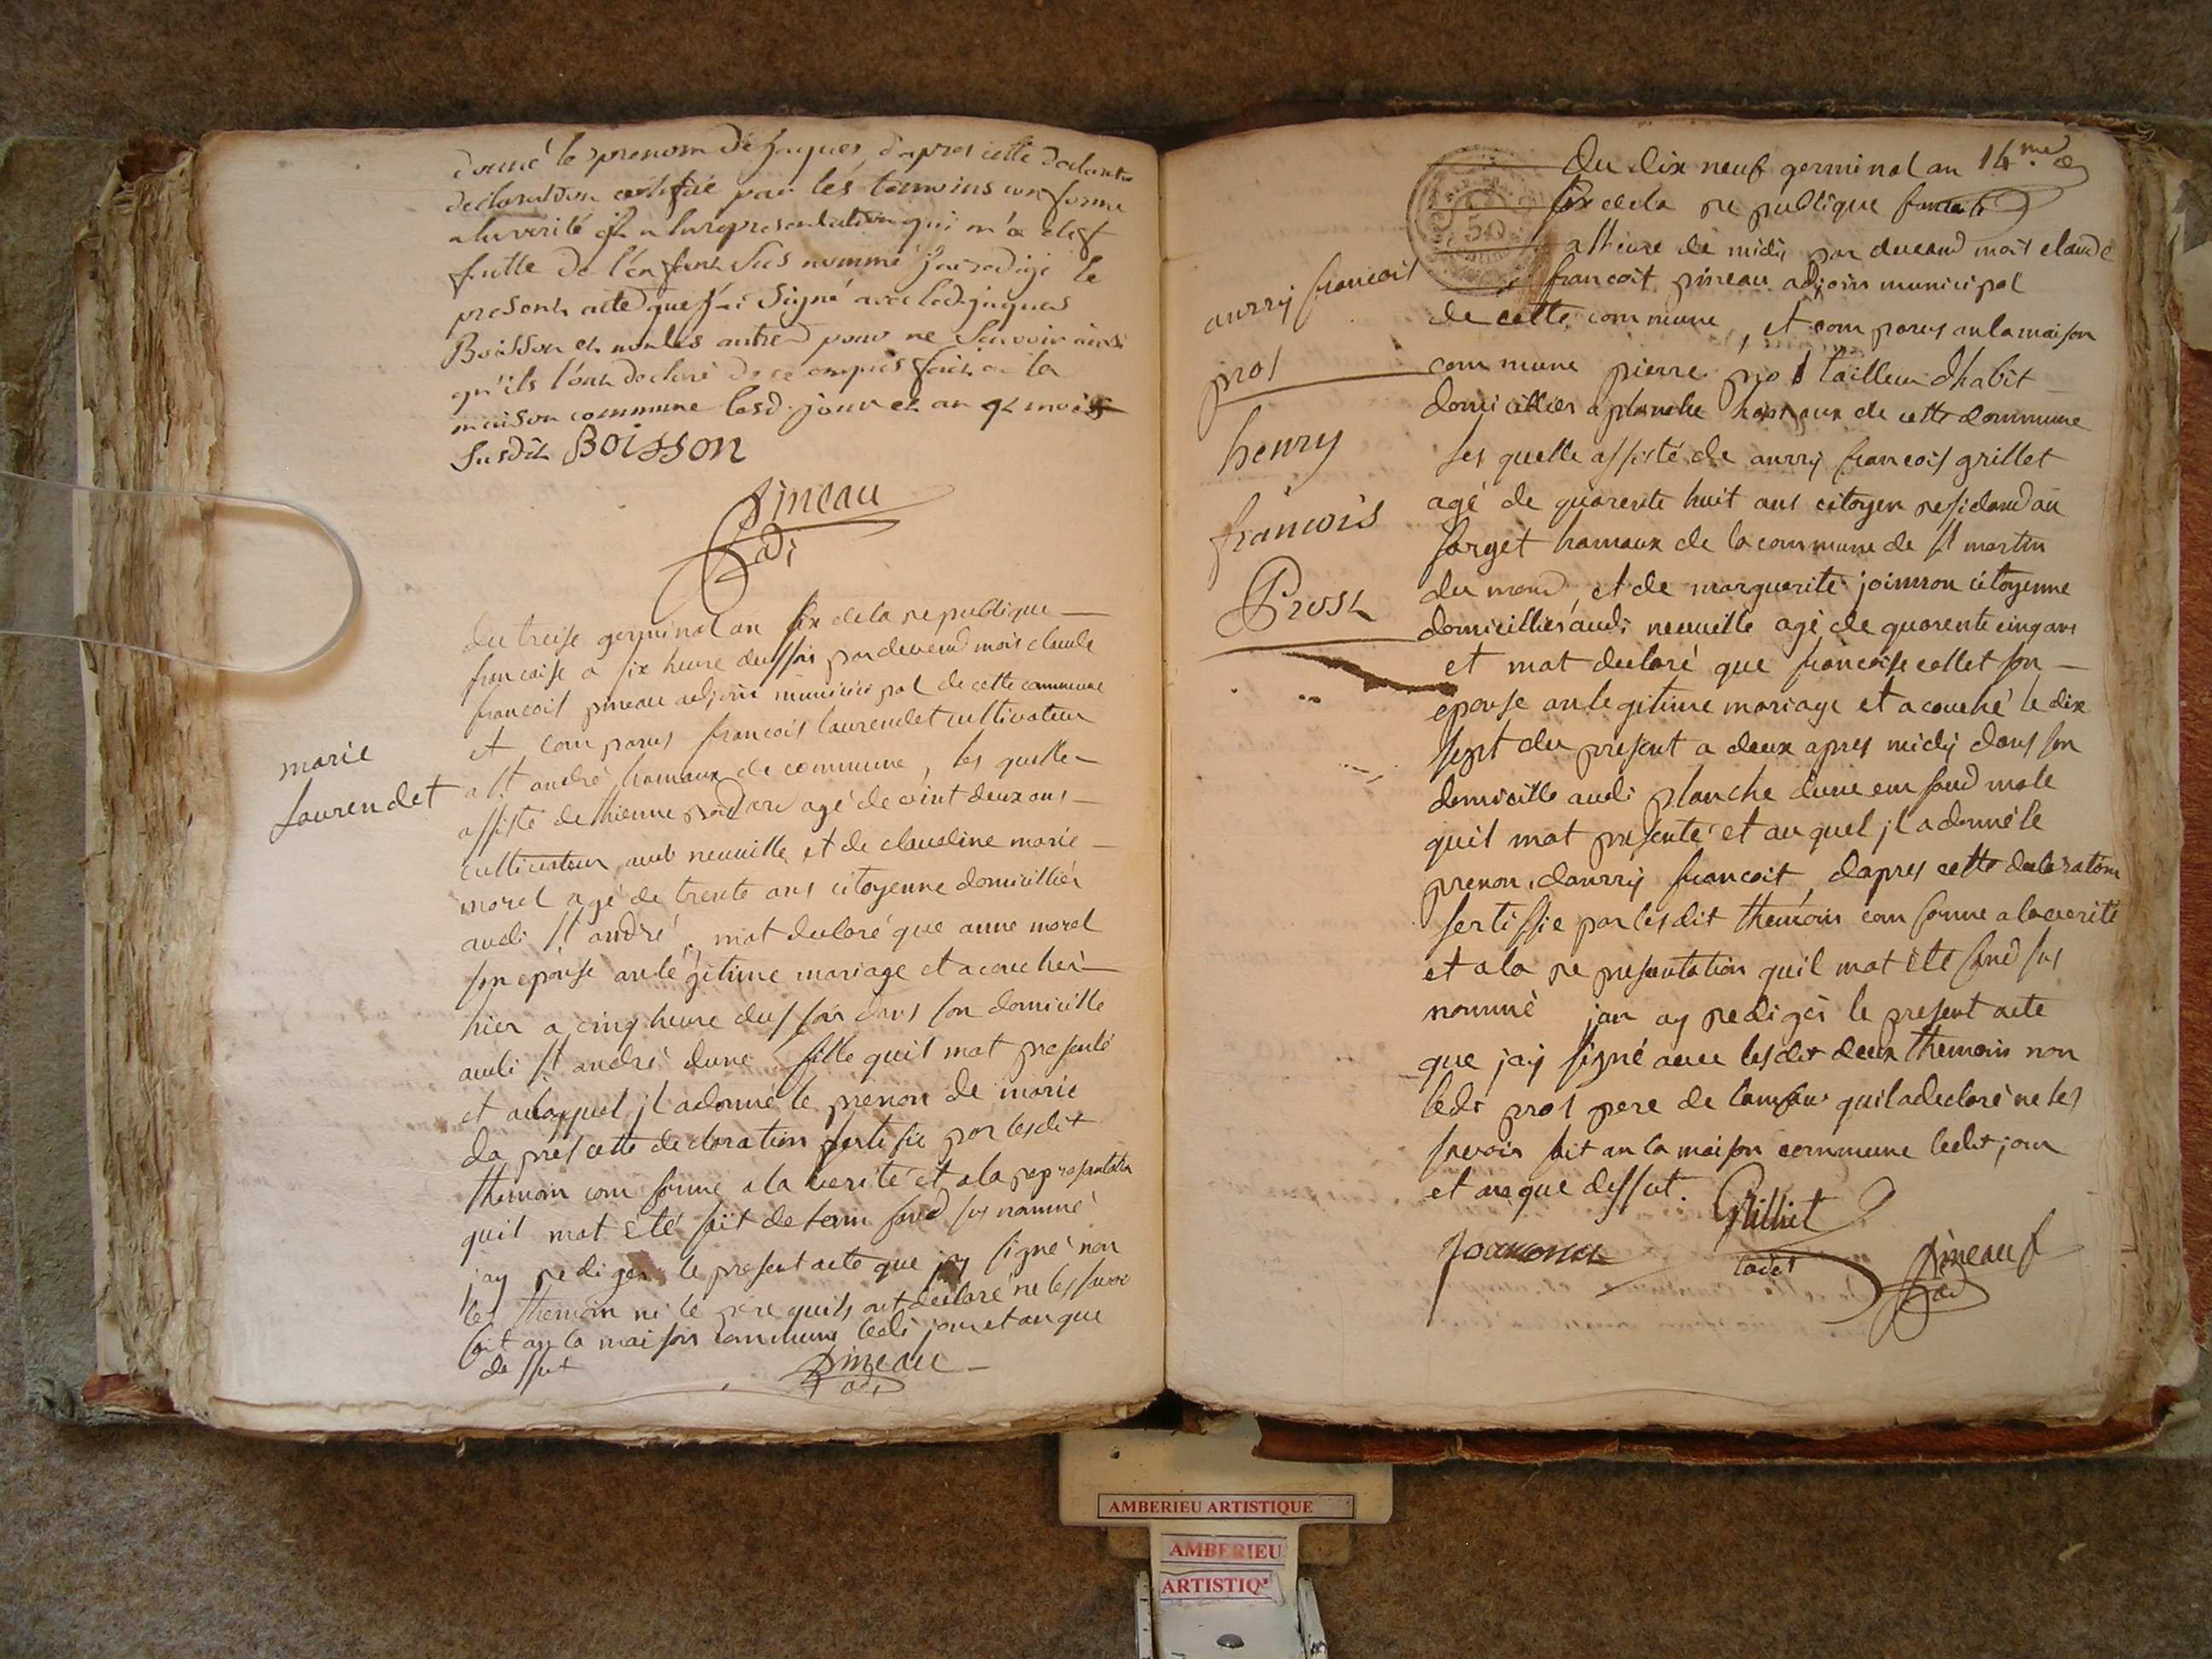 donné le prenom de jaques, dapres cette declarat
declaration certifiée par les temoins conforme
a la verité et a la representation qui m'a eté
faitte de l'enfant sus nommé j'ai redigé le
present acte que j'ai signé avec led. jaques
Boisson et non les autres pour ne savoir ainsi
qu'ils l'ont declaré de ce enquis fait a la
maison commune lesd. jour et an et mois
susdit BOISSON
pineau
adj
du treise germinal an six de la republique
francaise a six heure dussoir par devend mois claude
francois pineau adjoin municipal de cette commune
et comparus francois laurendet cultivateur
marie
laurendet
a st andré hamaux de commune, les quelle
assisté dethienne agé de vint deux ans
cultivateur audi neuville et de claudine marie
morel agé de trente ans citoyenne domicilliér
audi st andré, mat declaré que anne morel
son epouse an légitime mariage et a couchér
hier a cinq heure dussoir dans son domicille
audi st andré dune fille quil mat presenté
et a laquel jl a donné le prenon de marie
da pres cette declaration sertifié par lesdit
themoin com forme a la verité et a la representation
quil mat été fait de lenn fand sus nommé
jay rediger le present acte que jay signé non
les themoin ni le pere quils ont declaré ne les savoir
fait an la maison commune ledi jour et an que
de ssut
pineau
adj
du dix neuf germinal an 14me
six de la republique
a lheure de midi par devand mois claude
francoit pineau adjoin municipal
aurrij francoit
prot
henry
francois
Prost
de cette commune, et comparus an la maison
commune pierre prot tailleur dhabit
domicillier a planche hamaux de cette commune
les quelle assisté de aurrij francois grillet
agé de quarente huit ans citoyen residand au
farget hamaux de la commune de st martin
du mond, et de marguerite joinnon citoyenne
domicillier audi neuville agé de quarente cinq ans
et mat declaré que francoise collet son
epouse an legitime mariage et a couché le dix
sept du present a deux apres midij dans son
domicille audi planche dune en fand male
quil mat presenté et au quel jl a donné le
prenon daurrij francoit, dapres cette declaration
sertiffie par lesdit themoin com forme a la verité
et a la representation quil mat été sus
nommé jan ay rediger le present acte
que jaij signé avec lesdit deux themoin non
ledi prot pere de lanfan quil a declaré ne les
savoir fait an la maison commune ledit jour
et an que dessut. Grilliet
joannon cadet pineau f
adj
AMBERIEU ARTISTIQUE
AMBERIEU
ARTISTIQ